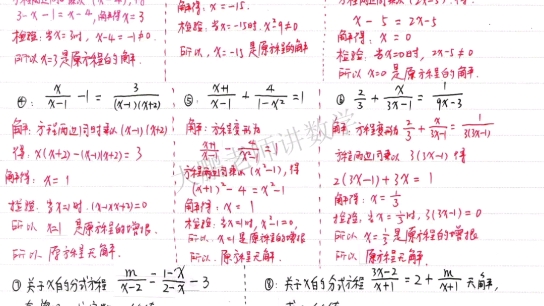 3-x-1=x-4, 解得x=3
检验: 当x=3时, x-4=-1≠0.
所以x=3是原方程的解.
解得: x=-15.
检验: 当x=-15时. x²-9≠0
所以, x=-15是原方程的解
x-5=2x-5
解得: x=0
检验: 当x=0时, 2x-5≠0
所以x=0是原方程的解.
④: x/(x-1) -1 = 3/((x-1)(x+2))
解: 方程两边同时乘以(x-1)(x+2)
得: x(x+2)-(x-1)(x+2)=3
解得: x=1
检验: 当x=1时. (x-1)(x+2)=0
所以 x=1 是原方程的增根.
所以. 原方程无解.
⑤ (x+1)/(x-1) + 4/(1-x²) = 1
解: 方程变形为
(x+1)/(x-1) - 4/(x²-1) = 1
方程两边同乘以(x²-1), 得
(x+1)²-4=x²-1
解得: x=1
检验: 当x=1时, x²-1=0,
所以. x=1是原方程的增根
所以. 原方程无解.
⑥ 2/3 + x/(3x-1) = 1/(9x-3)
解: 方程变形为 2/3 + x/(3x-1) = 1/(3(3x-1))
方程两边同乘以 3(3x-1) 得
2(3x-1)+3x=1
解得: x=1/3
检验: 当x=1/3时, 3(3x-1)=0
所以 x=1/3 是原方程的增根
所以. 原方程无解.
⑦ 关于x的分式方程 m/(x-2) = (1-x)/(2-x) - 3
⑧: 关于x的分式方程 (3x-2)/(x+1) = 2 + m/(x+1) 无解,
老师讲数学